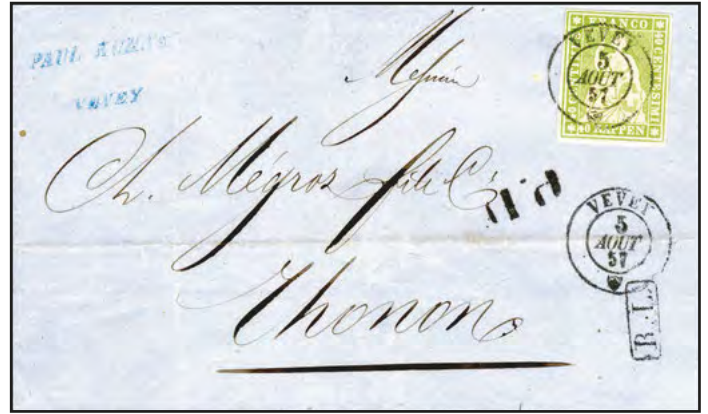 PAUL
VEVEY
FRANCO
40 CENTESIMI
40 RAPPEN
VEVEY
5
AOUT
57
Mégroz fils
P.D.
VEVEY
5
AOUT
57
R.L.
Thonon